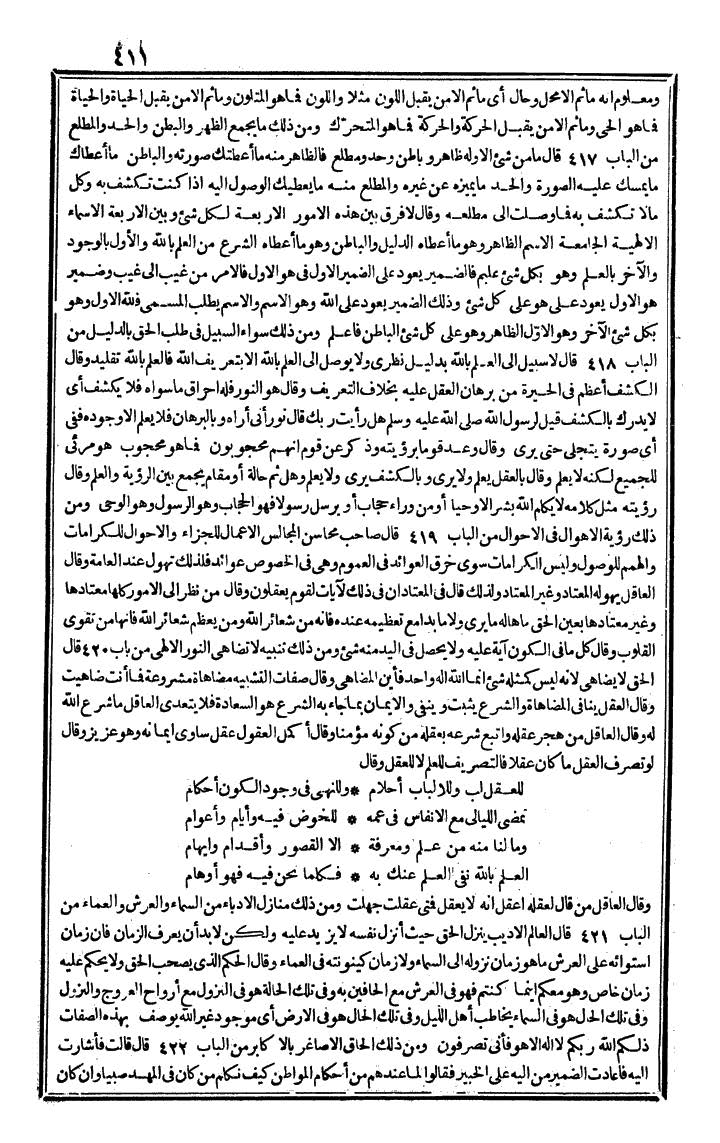 ٤١١
ومعلوم انه مائم الامحل وحال أى مائم الامن يقبل اللون مثلا واللون فاهو المتلون ومائم الامن يقبل الحياة والحياة
فاهو الحى ومائم الامن يقبل الحركة والحركة فاهو المتحرّك ومن ذلك مايجمع الظهر والبطن والحد والمطلع
من الباب ٤١٧ قال مامن شئ الاوله ظاهر وباطن وحد ومطلع فالظاهر منه ماأعطتك صورته والباطن ماأعطاك
مايمسك عليه الصورة والحد مايميزه عن غيره والمطلع منه مايعطيك الوصول اليه اذا كنت تكشف به وكل
مالا تكشف به فاوصلت الى مطلعه وقال لافرق بين هذه الامور الاربعة لكل شئ وبين الاربعة الاسماء
الالهية الجامعة الاسم الظاهر وهو ماأعطاه الدليل والباطن وهو ماأعطاه الشرع من العلم بالله والأول بالوجود
والآخر بالعلم وهو بكل شئ عليم فالضمير يعود على الضمير الاول فى هو الاول فالامر من غيب الى غيب وضمير
هو الاول يعود على هو على كل شئ وذلك الضمير يعود على الله وهو الاسم والاسم يطلب المسمى فلله الاول وهو
بكل شئ الآخر وهو الاوّل الظاهر وهو على كل شئ الباطن فاعلم ومن ذلك سواء السبيل فى طلب الحق بالدليل من
الباب ٤١٨ قال لاسبيل الى العلم بالله بدليل نظرى ولا يوصل الى العلم بالله الابتعريف الله فالعلم بالله تقليد وقال
الكشف أعظم فى الحيرة من برهان العقل عليه بخلاف التعريف وقال هو النور فله احراق ماسواه فلا يكشف أى
لايدرك بالكشف قيل لرسول الله صلى الله عليه وسلم هل رأيت ربك قال نور أنى أراه وبالبرهان فلا يعلم الاوجوده ففى
أى صورة يتجلى حتى يرى وقال وعد قوما برؤيته وذكر عن قوم انهم محجوبون فاهو محجوب هو مرئى
للجميع لكنه لايعلم وقال بالعقل يعلم ولا يرى وبالكشف يرى ولا يعلم وهل ثم حالة أو مقام يجمع بين الرؤية والعلم وقال
رؤيته مثل كلامه لايكلم الله بشر الاوحيا أو من وراء حجاب أو يرسل رسولا فهو الحجاب وهو الرسول وهو الوحى ومن
ذلك رؤية الاهوال فى الاحوال من الباب ٤١٩ قال صاحب محاسن المجالس الاعمال للجزاء والاحوال للكرامات
والهمم للوصول وليس الكرامات سوى خرق العوائد فى العموم وهى فى الخصوص عوائد فلذلك تهول عند العامة وقال
العاقل يهوله المعتاد وغير المعتاد ولذلك قال فى المعتاد ان فى ذلك لآيات لقوم يعقلون وقال من نظر الى الامور كلها معتادها
وغير معتادها بعين الحق ماهاله مايرى ولا مابدا مع تعظيمه عنده فانه من شعائر الله ومن يعظم شعائر الله فانها من تقوى
القلوب وقال كل مافى الكون آية عليه ولا يحصل فى اليد منه شئ ومن ذلك تنبيه لاتضاهى النور الالهى من باب ٤٢٠ قال
الحق لايضاهى لانه ليس كمثله شئ انما الله اله واحد فأين المضاهى وقال صفات التشبيه مضاهاة مشروعة فاأنت ضاهيت
وقال العقل ينافى المضاهاة والشرع يثبت وينفى والايمان بماجاء به الشرع هو السعادة فلا يتعدى العاقل ماشرع الله
له وقال العاقل من هجر عقله واتبع شرعه بعقله من كونه مؤمنا وقال أكمل العقول عقل ساوى ايمانه وهو عزيز وقال
لو تصرف العقل ما كان عقلا فالتصريف للعلم لا للعقل وقال
للعقل لب وللالباب أحلام * وللنهى فى وجود الكون أحكام
تمضى الليالى مع الانفاس فى عمه * للخوض فيه وأيام وأعوام
ومالنا منه من علم ومعرفة * الا القصور وأقدام وايهام
العلم بالله نفى العلم عنك به * فكلما نحن فيه فهو أوهام
وقال العاقل من قال لعقله اعقل انه لايعقل فتى عقلت جهلت ومن ذلك منازل الادباء من السماء والعرش والعماء من
الباب ٤٢١ قال العالم الاديب ينزل الحق حيث أنزل نفسه لايزيد عليه ولكن لابد أن يعرف الزمان فان زمان
استوائه على العرش ماهو زمان نزوله الى السماء ولا زمان كينونته فى العماء وقال الحكم الذى يصحب الحق ولا يحكم عليه
زمان خاص وهو معكم اينما كنتم فهو فى العرش مع الحافين به وفى تلك الحالة هو فى النزول مع أرواح العروج والنزول
وفى تلك الحال هو فى السماء يخاطب أهل الليل وفى تلك الحال هو فى الارض أى موجود غير الله يوصف بهذه الصفات
ذلكم الله ربكم لااله الاهو فأنى تصرفون ومن ذلك الحاق الاصاغر بالاكابر من الباب ٤٢٢ قال قالت فأشارت
اليه فاعادت الضمير من اليه على الخبير فقالوا لما عندهم من أحكام المواطن كيف نكلم من كان فى المهد صبيا وان كان